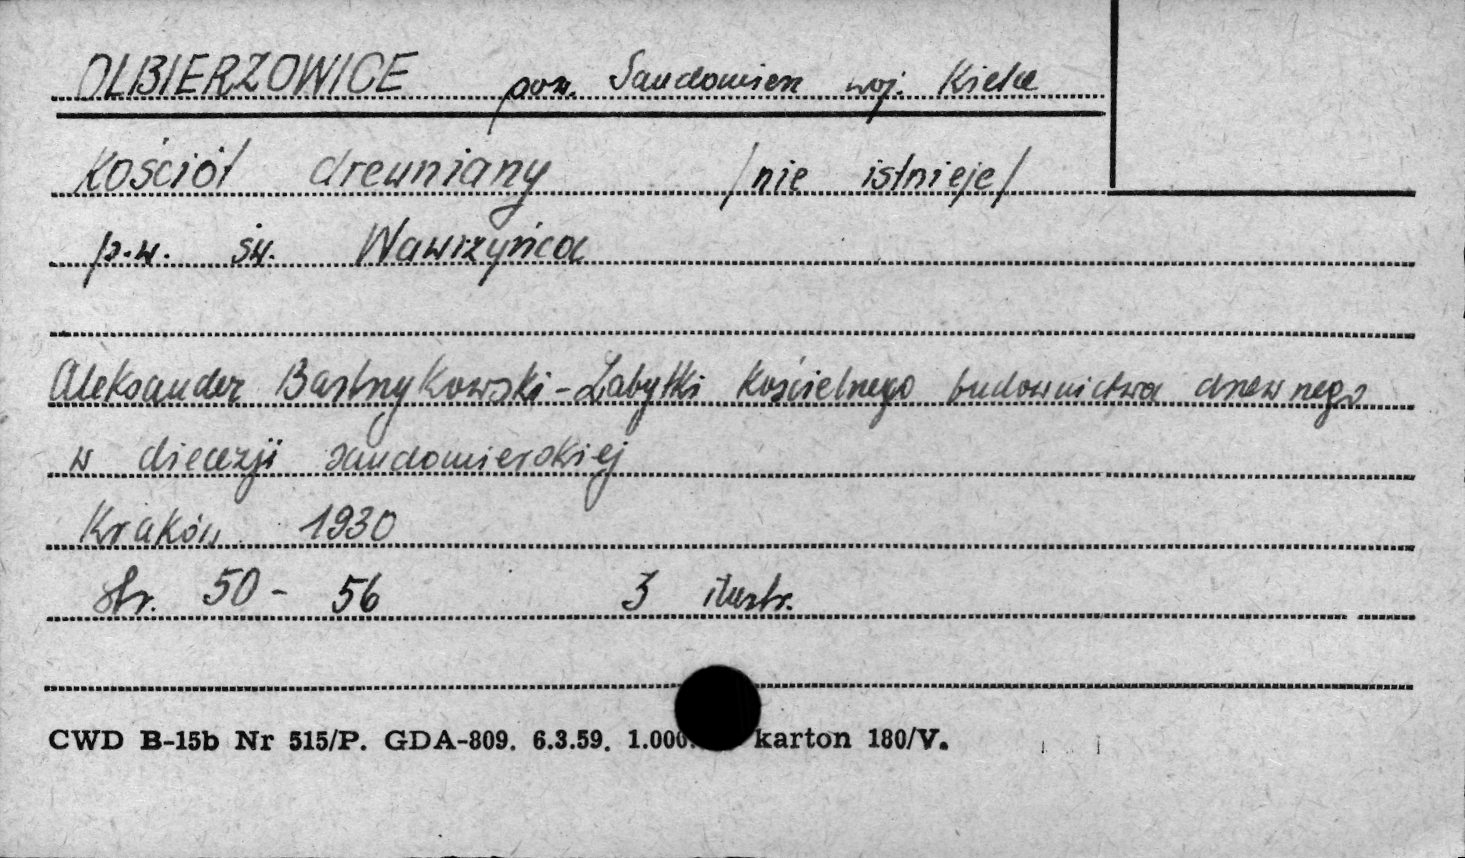 OLBIERZOWICE pow. Sandomierz woj. Kielce
Kościół drewniany /nie istnieje/
p.w. św. Wawrzyńca
Aleksander Bastrzykowski - Zabytki kościelnego budownictwa drewnego
w diecezji sandomierskiej
Kraków 1930
str. 50 - 56 3 ilustr.
CWD B-15b Nr 515/P. GDA-809. 6.3.59. 1.000. karton 180/V.